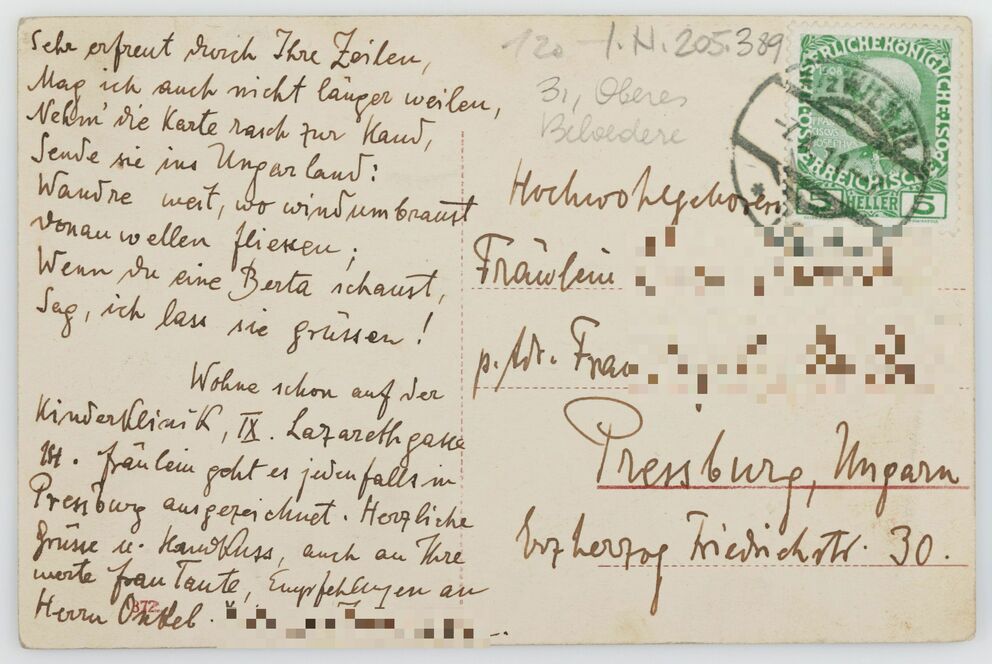 Sehr erfreut durch Ihre Zeilen,
Mag ich auch nicht länger weilen,
Nehm' die Karte rasch zur Hand,
Sende sie ins Ungarland:
Wandre weit, wo windumbraust
Donauwellen fliessen;
Wenn du eine Berta schaust,
Sag, ich lass sie grüssen!
Wohne schon auf der
Kinderklinik, IX. Lazarethgasse
Fräulein geht es jedenfalls in
Pressburg ausgezeichnet. Herzliche
Grüsse u. Handkuss, auch an Ihre
werte Frau Tante, Empfehlungen an
Herrn Onkel.
872
120 I.N. 205.389
31, Oberes
Belvedere
KAISERLICHE KÖNIGLICHE ÖSTERREICHISCHE
1908
5 HELLER 5
WIEN
Hochwohlgeboren
Fräulein
p. Adr. Frau
Pressburg, Ungarn
Erzherzog Friedrichstr. 30.